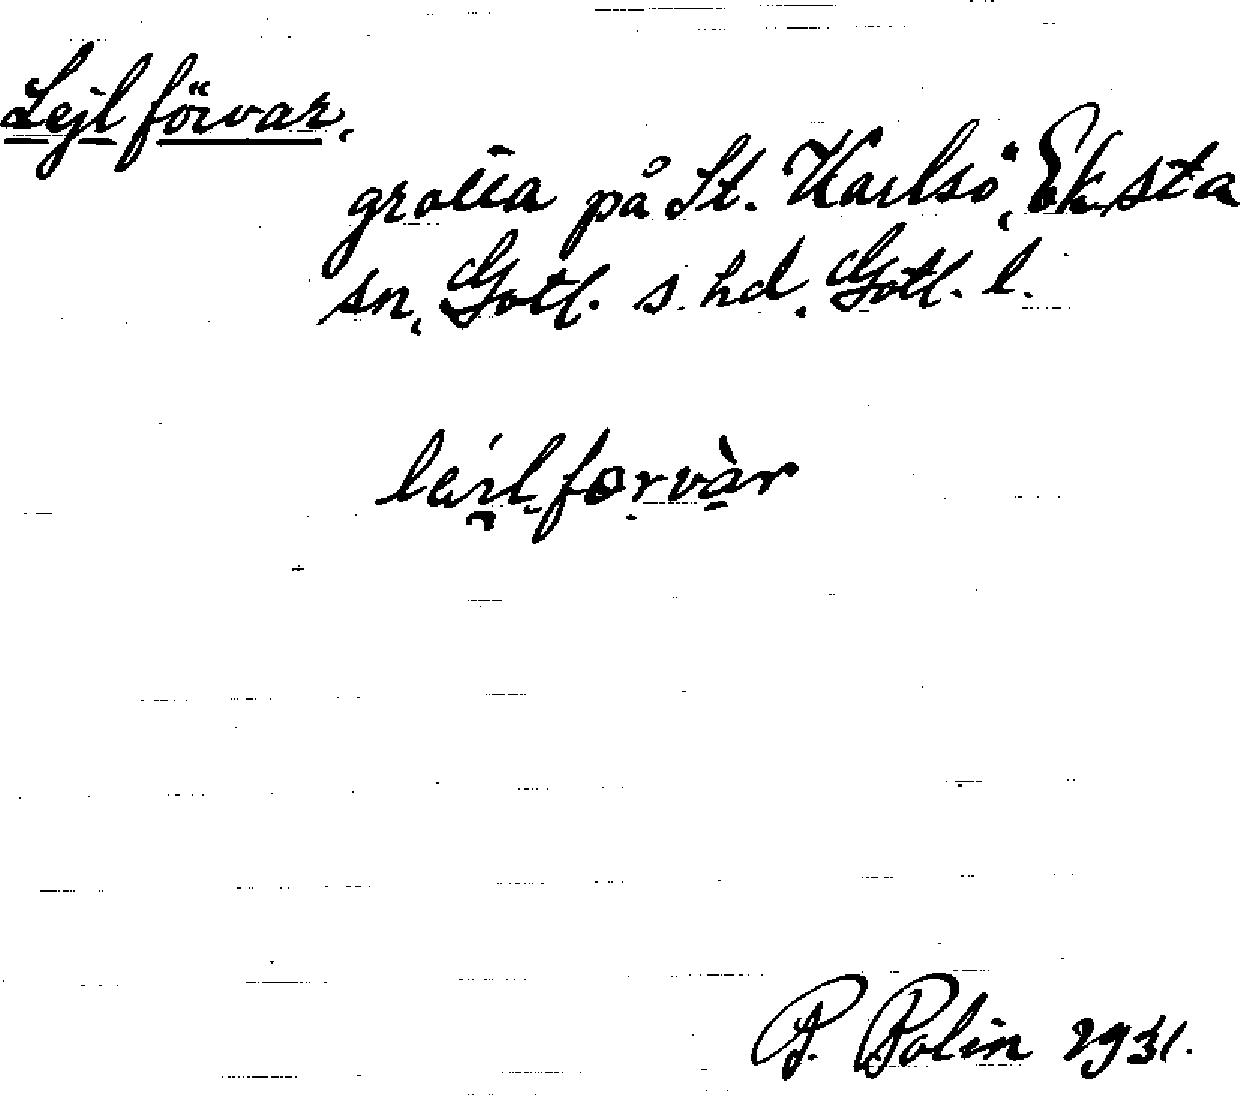 Lejl förvar,
grotta på St. Karlsö, Eksta
sn, Gotl. s. hd, Gotl. l.
lai̯l forvàr
P. Bolin 1931.